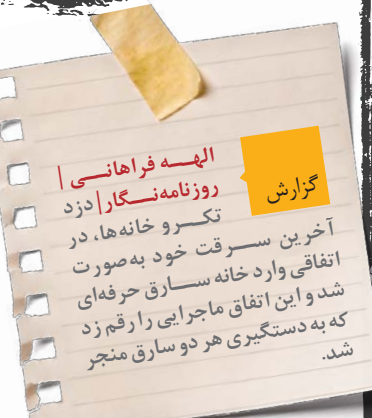 گزارش
الهـــه فراهانـــی |
روزنامه‌نـــگار| دزد
تکـــرو خانه‌ها، در
آخرین ســـرقت خود به‌صورت
اتفاقی وارد خانه ســـارق حرفه‌ای
شد و این اتفاق ماجرایی را رقم زد
که به دستگیری هر دو سارق منجر
شد.